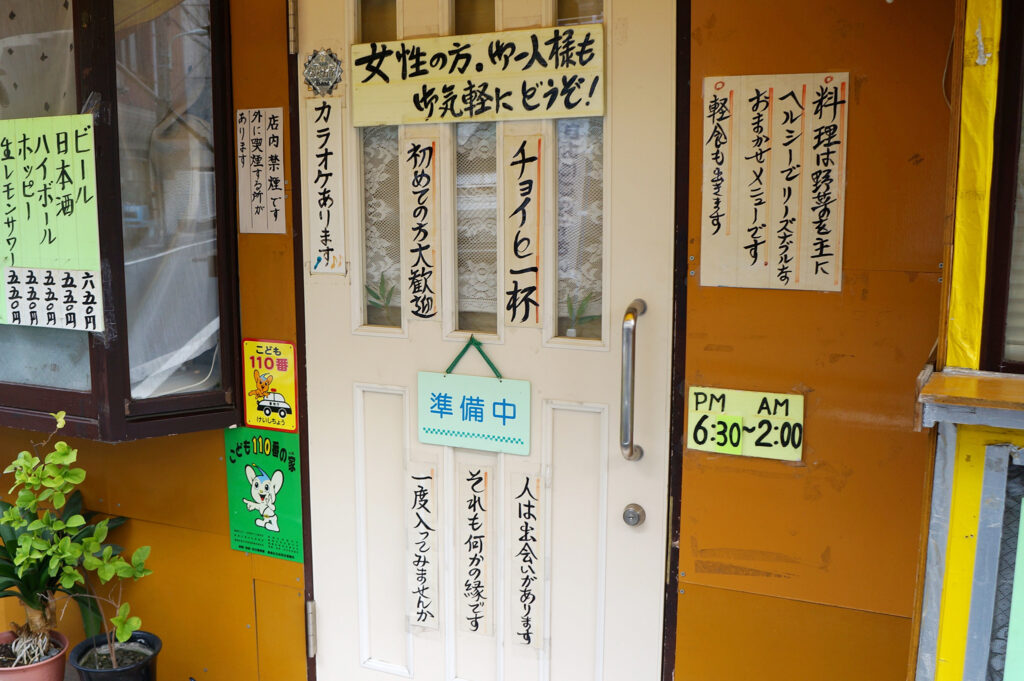 女性の方。御一人様も
御気軽にどうぞ!
チョイと一杯
初めての方大歓迎
カラオケあります
店内禁煙です
外に喫煙する所が
あります
ビール
日本酒
ハイボール
ホッピー
生レモンサワー
六五〇円
五五〇円
五五〇円
五五〇円
五五〇円
料理は野菜を主に
ヘルシーでリーズナブルな
おまかせメニューです。
軽食も出きます
PM AM
6:30~2:00
準備中
人は出会いがあります
それも何かの縁です
一度入ってみませんか
こども
110番
けいしちょう
こども110番の家